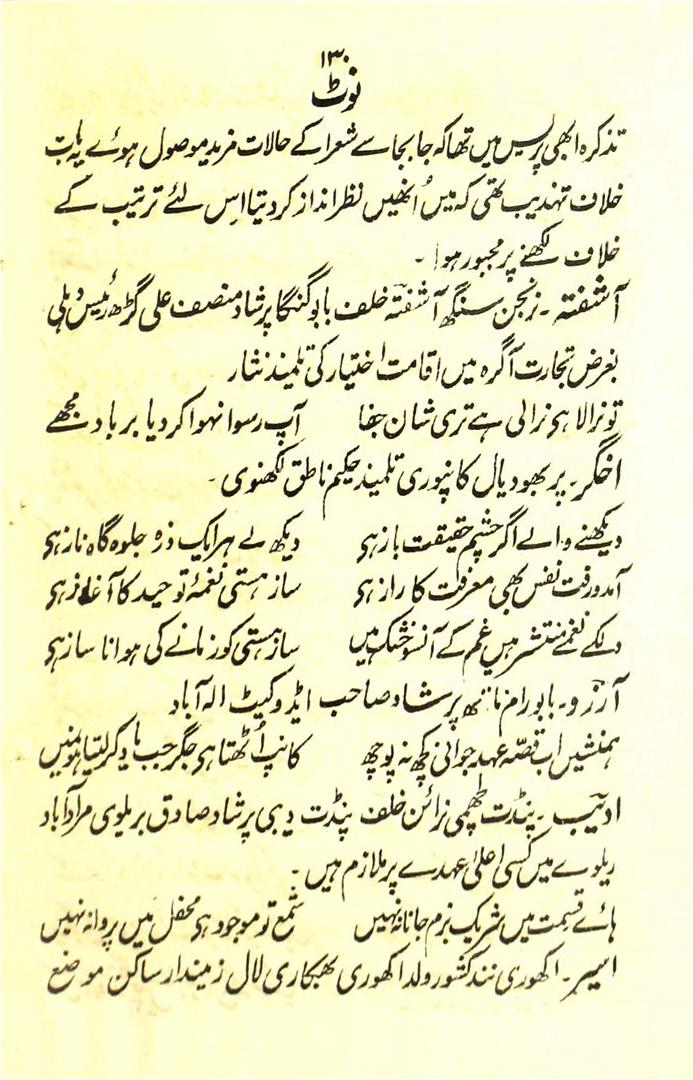 ۱۳۰
نوٹ
تذکرہ ابھی پریس میں تھا کہ جابجا سے شعرا کے حالات مزید موصول ہوئے یہ بات
خلاف تہذیب تھی کہ میں اُنھیں نظر انداز کر دیتا اس لئے ترتیب کے
خلاف لکھنے پر مجبور ہوا ۔
آشفتہ ۔ رنجن سنگھ آشفتہ خلف بابو گنگا پرشاد منصف علی گڑھ رئیس دہلی
بغرض تجارت آگرہ میں اقامت اختیار کی تلمیذ نثار
تو نرالا ہی نرالی ہے تری شان جفا آپ رسوا نہوا کر دیا برباد مجھے
اخگر ۔ پربھو دیال کانپوری تلمیذ حکیم ناطق لکھنوی ۔
دیکھنے والے اگر چشم حقیقت باز ہی دیکھ لے ہر ایک ذرہ جلوہ گاہ ناز ہی
آمد و رفت نفس بھی معرفت کا راز ہی ساز ہستی نغمۂ توحید کا آغاز ہی
دلکے نغمے منتشر ہیں غم کے آنسو خشک ہیں ساز ہستی کو زمانے کی ہوا ناساز ہی
آرزو ۔ بابو رام ناتھ پرشاد صاحب ایڈوکیٹ الہ آباد
ہمنشیں اب قصّہ عہد جوانی کچھ نہ پوچھ کانپ اُٹھتا ہی جگر جب یاد کر لیتا ہوں میں
ادیب ۔ پنڈت لچھمی نرائن خلف پنڈت دیبی پرشاد صادق بریلوی مرادآباد
ریلوے میں کسی اعلیٰ عہدے پر ملازم ہیں ۔
ہائے قسمت میں شریک بزم جانانہ نہیں شمع تو موجود ہی محفل میں پروانہ نہیں
اسیر ۔ اکھوری نند کشور ولد اکھوری بھکاری لال زمیندار ساکن موضع